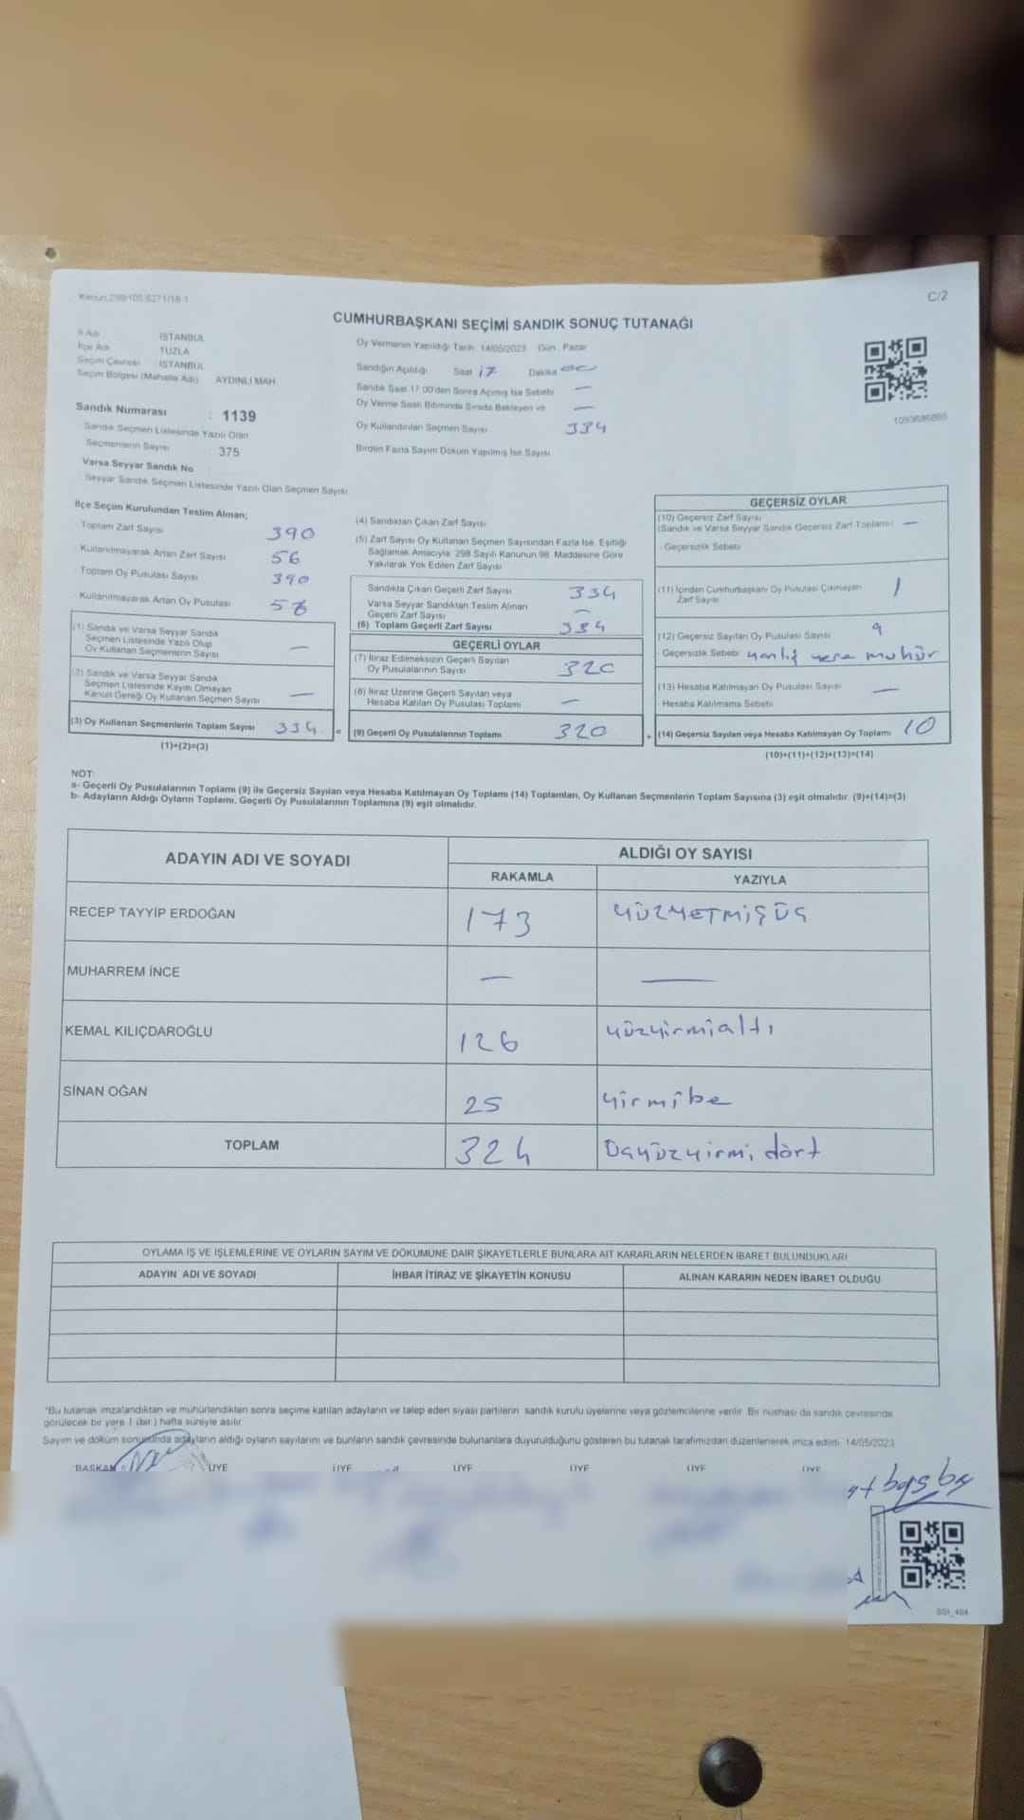 Kanun:298/105,6271/18-1
C/2
CUMHURBAŞKANI SEÇİMİ SANDIK SONUÇ TUTANAĞI
İl Adı : İSTANBUL
İlçe Adı : TUZLA
Seçim Çevresi : İSTANBUL
Seçim Bölgesi (Mahalle Adı) : AYDINLI MAH.
Sandık Numarası : 1139
Sandık Seçmen Listesinde Yazılı Olan
Seçmenlerin Sayısı 375
Varsa Seyyar Sandık No
Seyyar Sandık Seçmen Listesinde Yazılı Olan Seçmen Sayısı
Oy Vermenin Yapıldığı Tarih: 14/05/2023 Gün: Pazar
Sandığın Açıldığı Saat 17 Dakika
Sandık Saat 17.00'den Sonra Açılmış İse Sebebi —
Oy Verme Saati Bitiminde Sırada Bekleyen ve —
Oy Kullandırılan Seçmen Sayısı 334
Birden Fazla Sayım Döküm Yapılmış İse Sayısı
İlçe Seçim Kurulundan Teslim Alınan;
Toplam Zarf Sayısı 390
Kullanılmayarak Artan Zarf Sayısı 56
Toplam Oy Pusulası Sayısı 390
Kullanılmayarak Artan Oy Pusulası 56
(1) Sandık ve Varsa Seyyar Sandık
Seçmen Listesinde Yazılı Olup
Oy Kullanan Seçmenlerin Sayısı —
(2) Sandık ve Varsa Seyyar Sandık
Seçmen Listesinde Kayıtlı Olmayan
Kanun Gereği Oy Kullanan Seçmen Sayısı —
(3) Oy Kullanan Seçmenlerin Toplam Sayısı 334 =
(1)+(2)=(3)
(4) Sandıktan Çıkan Zarf Sayısı
(5) Zarf Sayısı Oy Kullanan Seçmen Sayısından Fazla İse, Eşitliği
Sağlamak Amacıyla, 298 Sayılı Kanunun 98. Maddesine Göre
Yakılarak Yok Edilen Zarf Sayısı
Sandıkta Çıkan Geçerli Zarf Sayısı 334
Varsa Seyyar Sandıktan Teslim Alınan
Geçerli Zarf Sayısı —
(6) Toplam Geçerli Zarf Sayısı 334
GEÇERLİ OYLAR
(7) İtiraz Edilmeksizin Geçerli Sayılan
Oy Pusulalarının Sayısı 320
(8) İtiraz Üzerine Geçerli Sayılan veya
Hesaba Katılan Oy Pusulası Toplamı —
(9) Geçerli Oy Pusulalarının Toplamı 320 +
1093686865
GEÇERSİZ OYLAR
(10) Geçersiz Zarf Sayısı
(Sandık ve Varsa Seyyar Sandık Geçersiz Zarf Toplamı) —
Geçersizlik Sebebi
(11) İçinden Cumhurbaşkanı Oy Pusulası Çıkmayan
Zarf Sayısı 1
(12) Geçersiz Sayılan Oy Pusulası Sayısı 9
Geçersizlik Sebebi yanlış yere mühür
(13) Hesaba Katılmayan Oy Pusulası Sayısı —
Hesaba Katılmama Sebebi
(14) Geçersiz Sayılan veya Hesaba Katılmayan Oy Toplamı 10
(10)+(11)+(12)+(13)=(14)
NOT:
a- Geçerli Oy Pusulalarının Toplamı (9) ile Geçersiz Sayılan veya Hesaba Katılmayan Oy Toplamı (14) Toplamları, Oy Kullanan Seçmenlerin Toplam Sayısına (3) eşit olmalıdır. (9)+(14)=(3)
b- Adayların Aldığı Oyların Toplamı, Geçerli Oy Pusulalarının Toplamına (9) eşit olmalıdır.
ADAYIN ADI VE SOYADI
ALDIĞI OY SAYISI
RAKAMLA YAZIYLA
RECEP TAYYİP ERDOĞAN 173 YÜZYETMİŞÜÇ
MUHARREM İNCE — —
KEMAL KILIÇDAROĞLU 126 yüzyirmialtı
SİNAN OĞAN 25 yirmibe
TOPLAM 324 Üçyüzyirmi dört
OYLAMA İŞ VE İŞLEMLERİNE VE OYLARIN SAYIM VE DÖKÜMÜNE DAİR ŞİKAYETLERLE BUNLARA AİT KARARLARIN NELERDEN İBARET BULUNDUKLARI
ADAYIN ADI VE SOYADI İHBAR İTİRAZ VE ŞİKAYETİN KONUSU ALINAN KARARIN NEDEN İBARET OLDUĞU
*Bu tutanak imzalandıktan ve mühürlendikten sonra seçime katılan adayların ve talep eden siyasi partilerin sandık kurulu üyelerine veya gözlemcilerine verilir. Bir nüshası da sandık çevresinde
görülecek bir yere 1 (bir) hafta süreyle asılır.
Sayım ve döküm sonucunda adayların aldığı oyların sayılarını ve bunların sandık çevresinde bulunanlara duyurulduğunu gösteren bu tutanak tarafımızdan düzenlenerek imza edildi. 14/05/2023
BAŞKAN ÜYE ÜYE ÜYE ÜYE ÜYE ÜYE